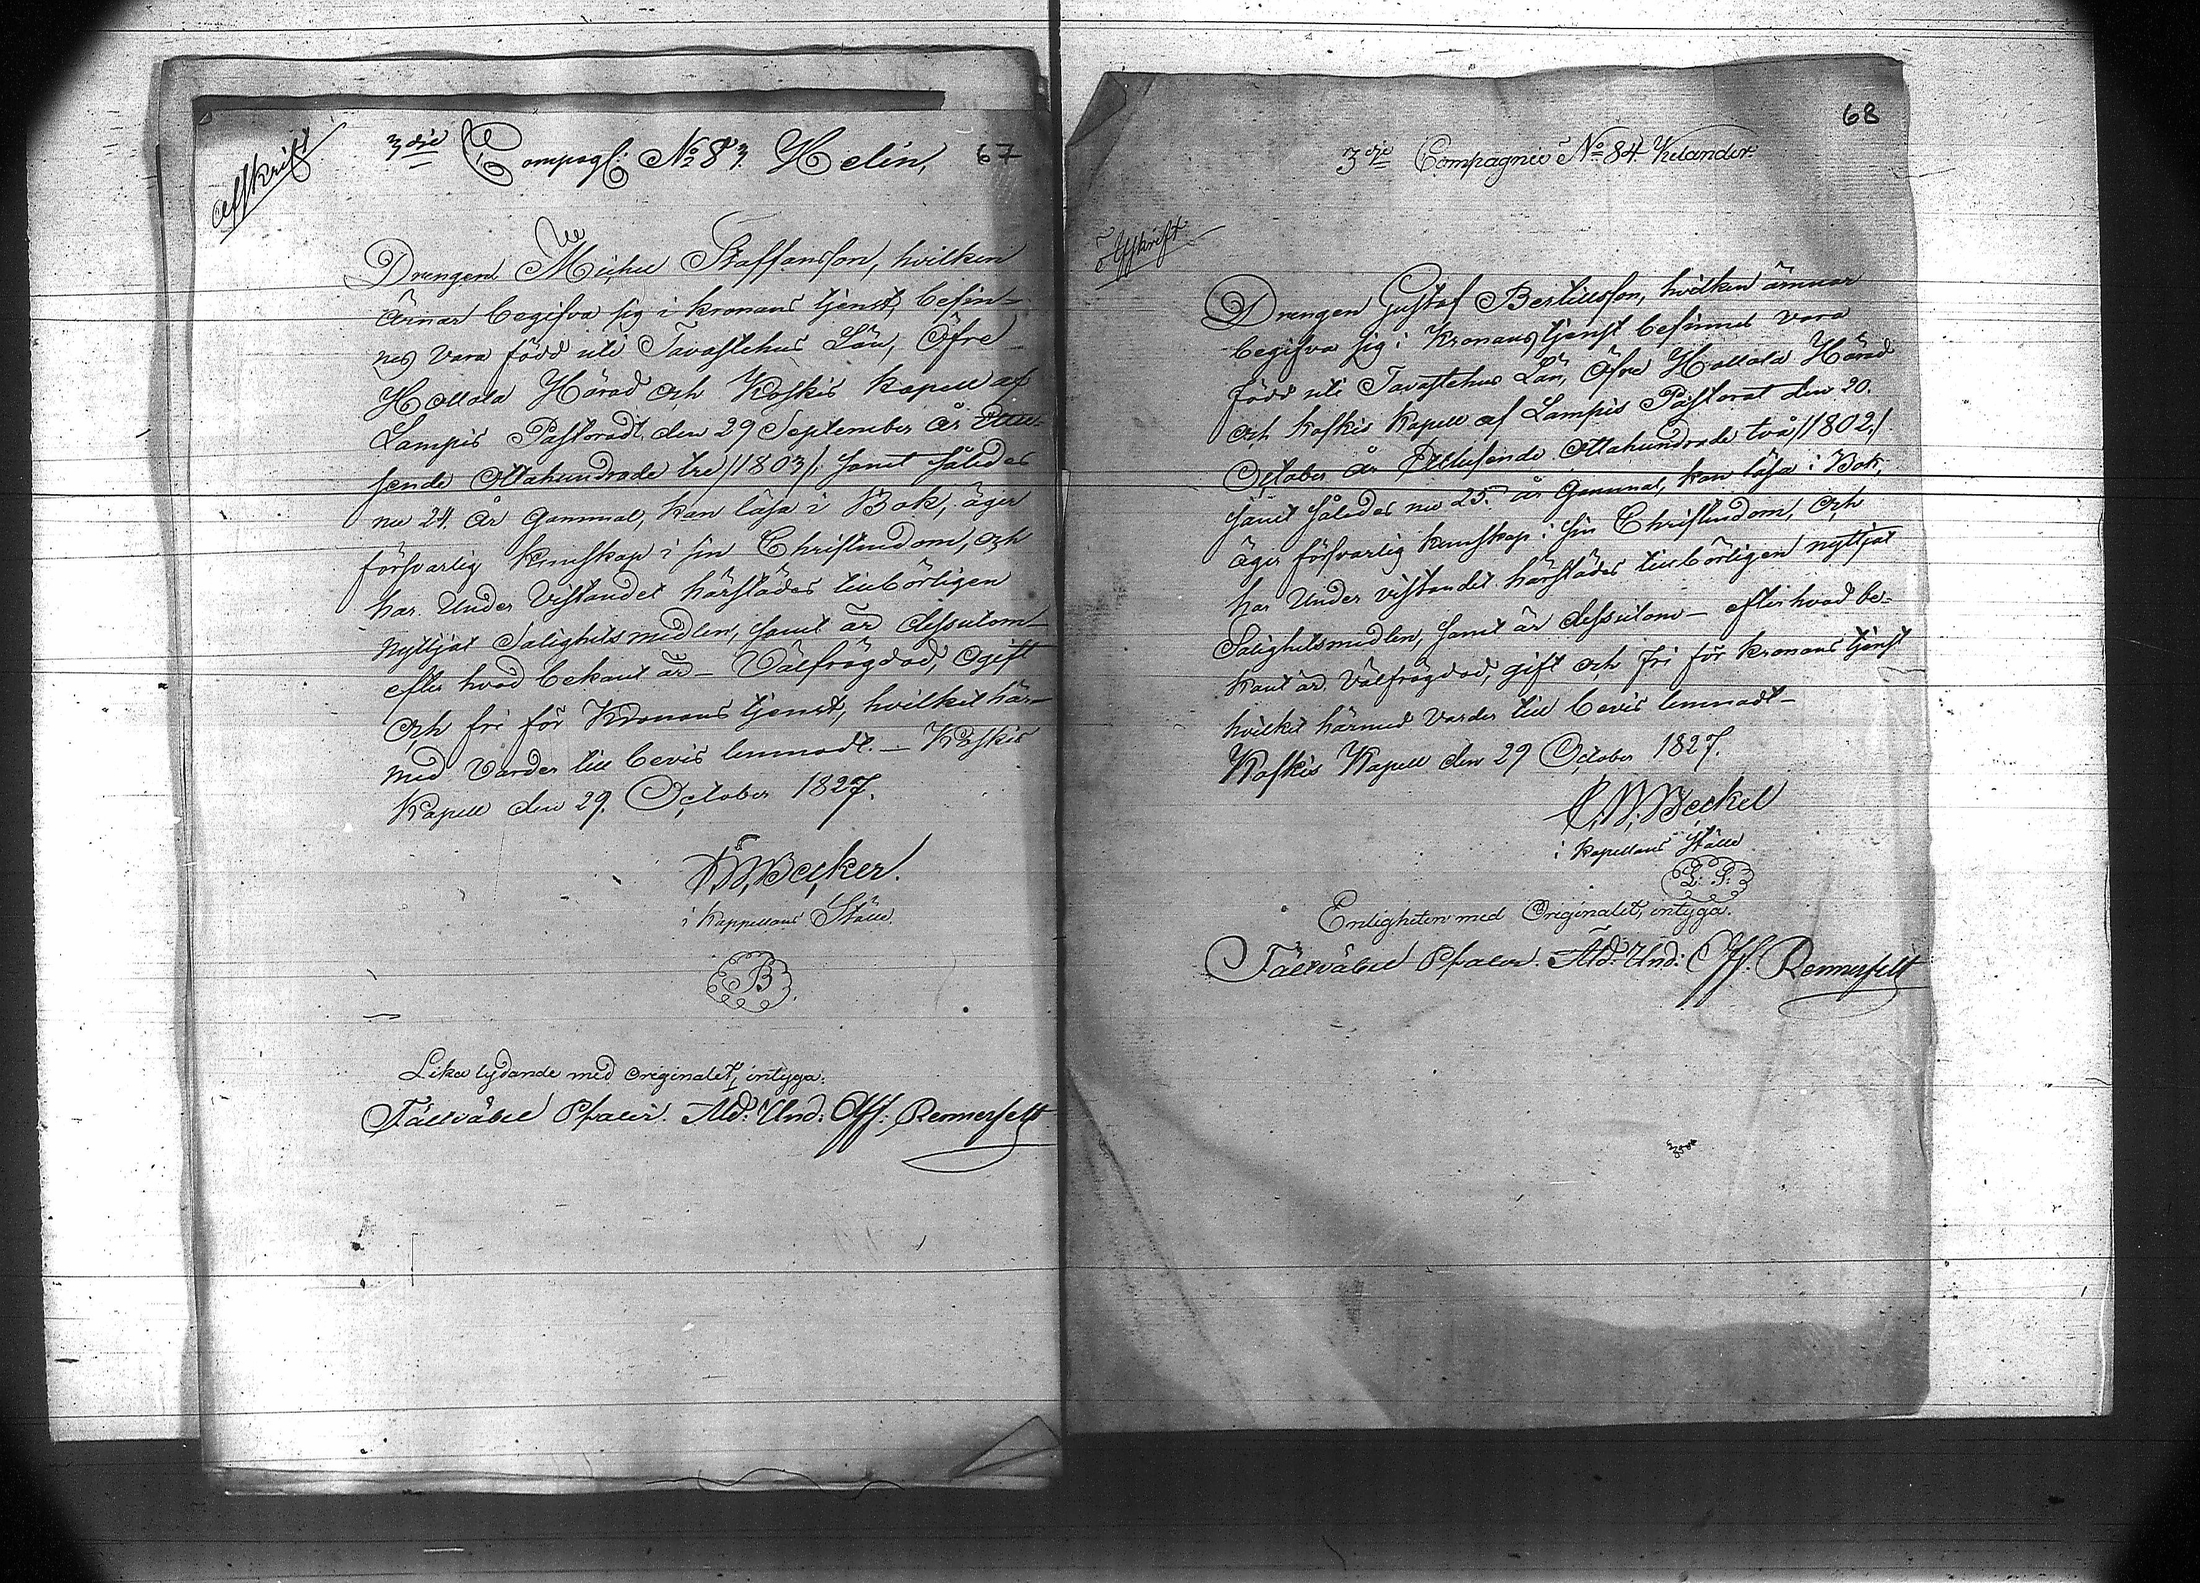 Affskrift
3dje Compagl: No 83. Helin, 67
Drengen Michel Staffansson, hvilken
ärnar begifva sig i kronans tjenst, befin-
nes vara född uti Tavastehus Län, Öfre
Hollola Härad och Koskis kapell af
Lampis Pastoradt, den 29 September år Ettu-
sende Ottahundrade tre /1803/, samt således
nu 24. år gammal, kan läsa i Bok, äger
försvarlig kunskap i sin Christendom, och
har under vistandet härstädes tillbörligen
nyttjat Salighetsmedlen, samt är dessutom
efter hvad bekant är – Välfrägdad, ogift
och fri för Kronans tjenst, hvilket här-
med varder till bevis lemnadt. – Koskis
Kapell den 29. October 1827.
Becker.
i Kappellans Ställe.
B
Lika lydande med Originalet, intyga:
Fältväbel Pfaler. Afd: Und: Off: Rennerfelt
68
3dje Compagnie No 84 Kelander
Afskrift
Drengen Gustaf Bertillsson, hvilken ärnar
begifva sig i Kronans tjenst befinnes vara
född uti Tavastehus Län, Öfre Hollola Härad
och Koskis Kapell af Lampis Pastorat den 20.
October år Ettusende Ottahundrade två /1802/
samt således nu 25. år gammal, kan läsa i Bok,
äger försvarlig kunskap i sin Christendom, och
har under vistandet härstädes tillbörligen nyttjat
Salighetsmedlen, samt är dessutom – efter hvad be-
kant är Välfrägdad, gift och fri för kronans tjenst
hvilket härmed varder till bevis lemnadt –
Koskis Kapell den 29 October 1827.
Beckel
i kapellans Ställe
L. S.
Enligheten med Originalet, intyga.
Fältväbel Pfaler. Afd: Und: Off: Rennerfelt